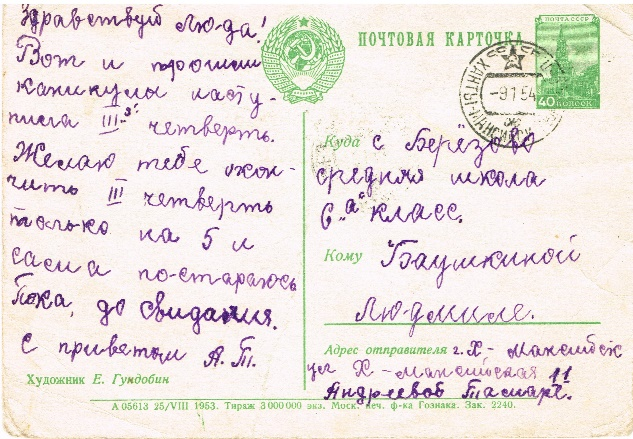 Здравствуй Люда!
Вот и прошли
каникулы насту-
пила III-я четверть.
Желаю тебе окон-
чить III четверть
только на 5 и
сама по-стараюсь
Пока, до свидания.
с приветом А.Т.
Художник Е. Гундобин
ПОЧТОВАЯ КАРТОЧКА
ПОЧТА СССР
40 КОПЕЕК
-9 1 54
Куда с Берёзово
средняя школа
6 "а" класс.
Кому Баушкиной
Людмиле.
Адрес отправителя г. Х-Мансийск
ул Х-Мансийская 11
Андреевой Тамары.
А 05613 25/VIII 1953. Тираж 3 000 000 экз. Моск. печ. ф-ка Гознака. Зак. 2240.